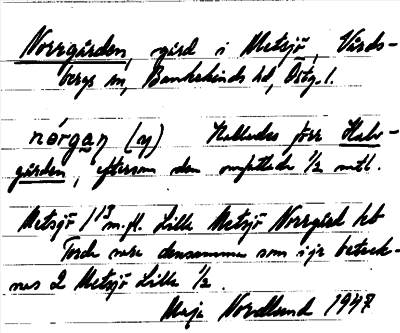 Norrgården, gård i Metsjö, Vårds-
bergs sn, Bankekinds hd, Östg. l.
nórgan (y) Kallades förr Halv-
gården, eftersom den omfattade 1/2 mtl.
Metsjö 1/13 m.fl. Lilla Metsjö Norrgård hb
Torde vara densamma som i jr beteck-
nas 2 Metsjö Lilla 1/2.
Maja Nordlund 1947